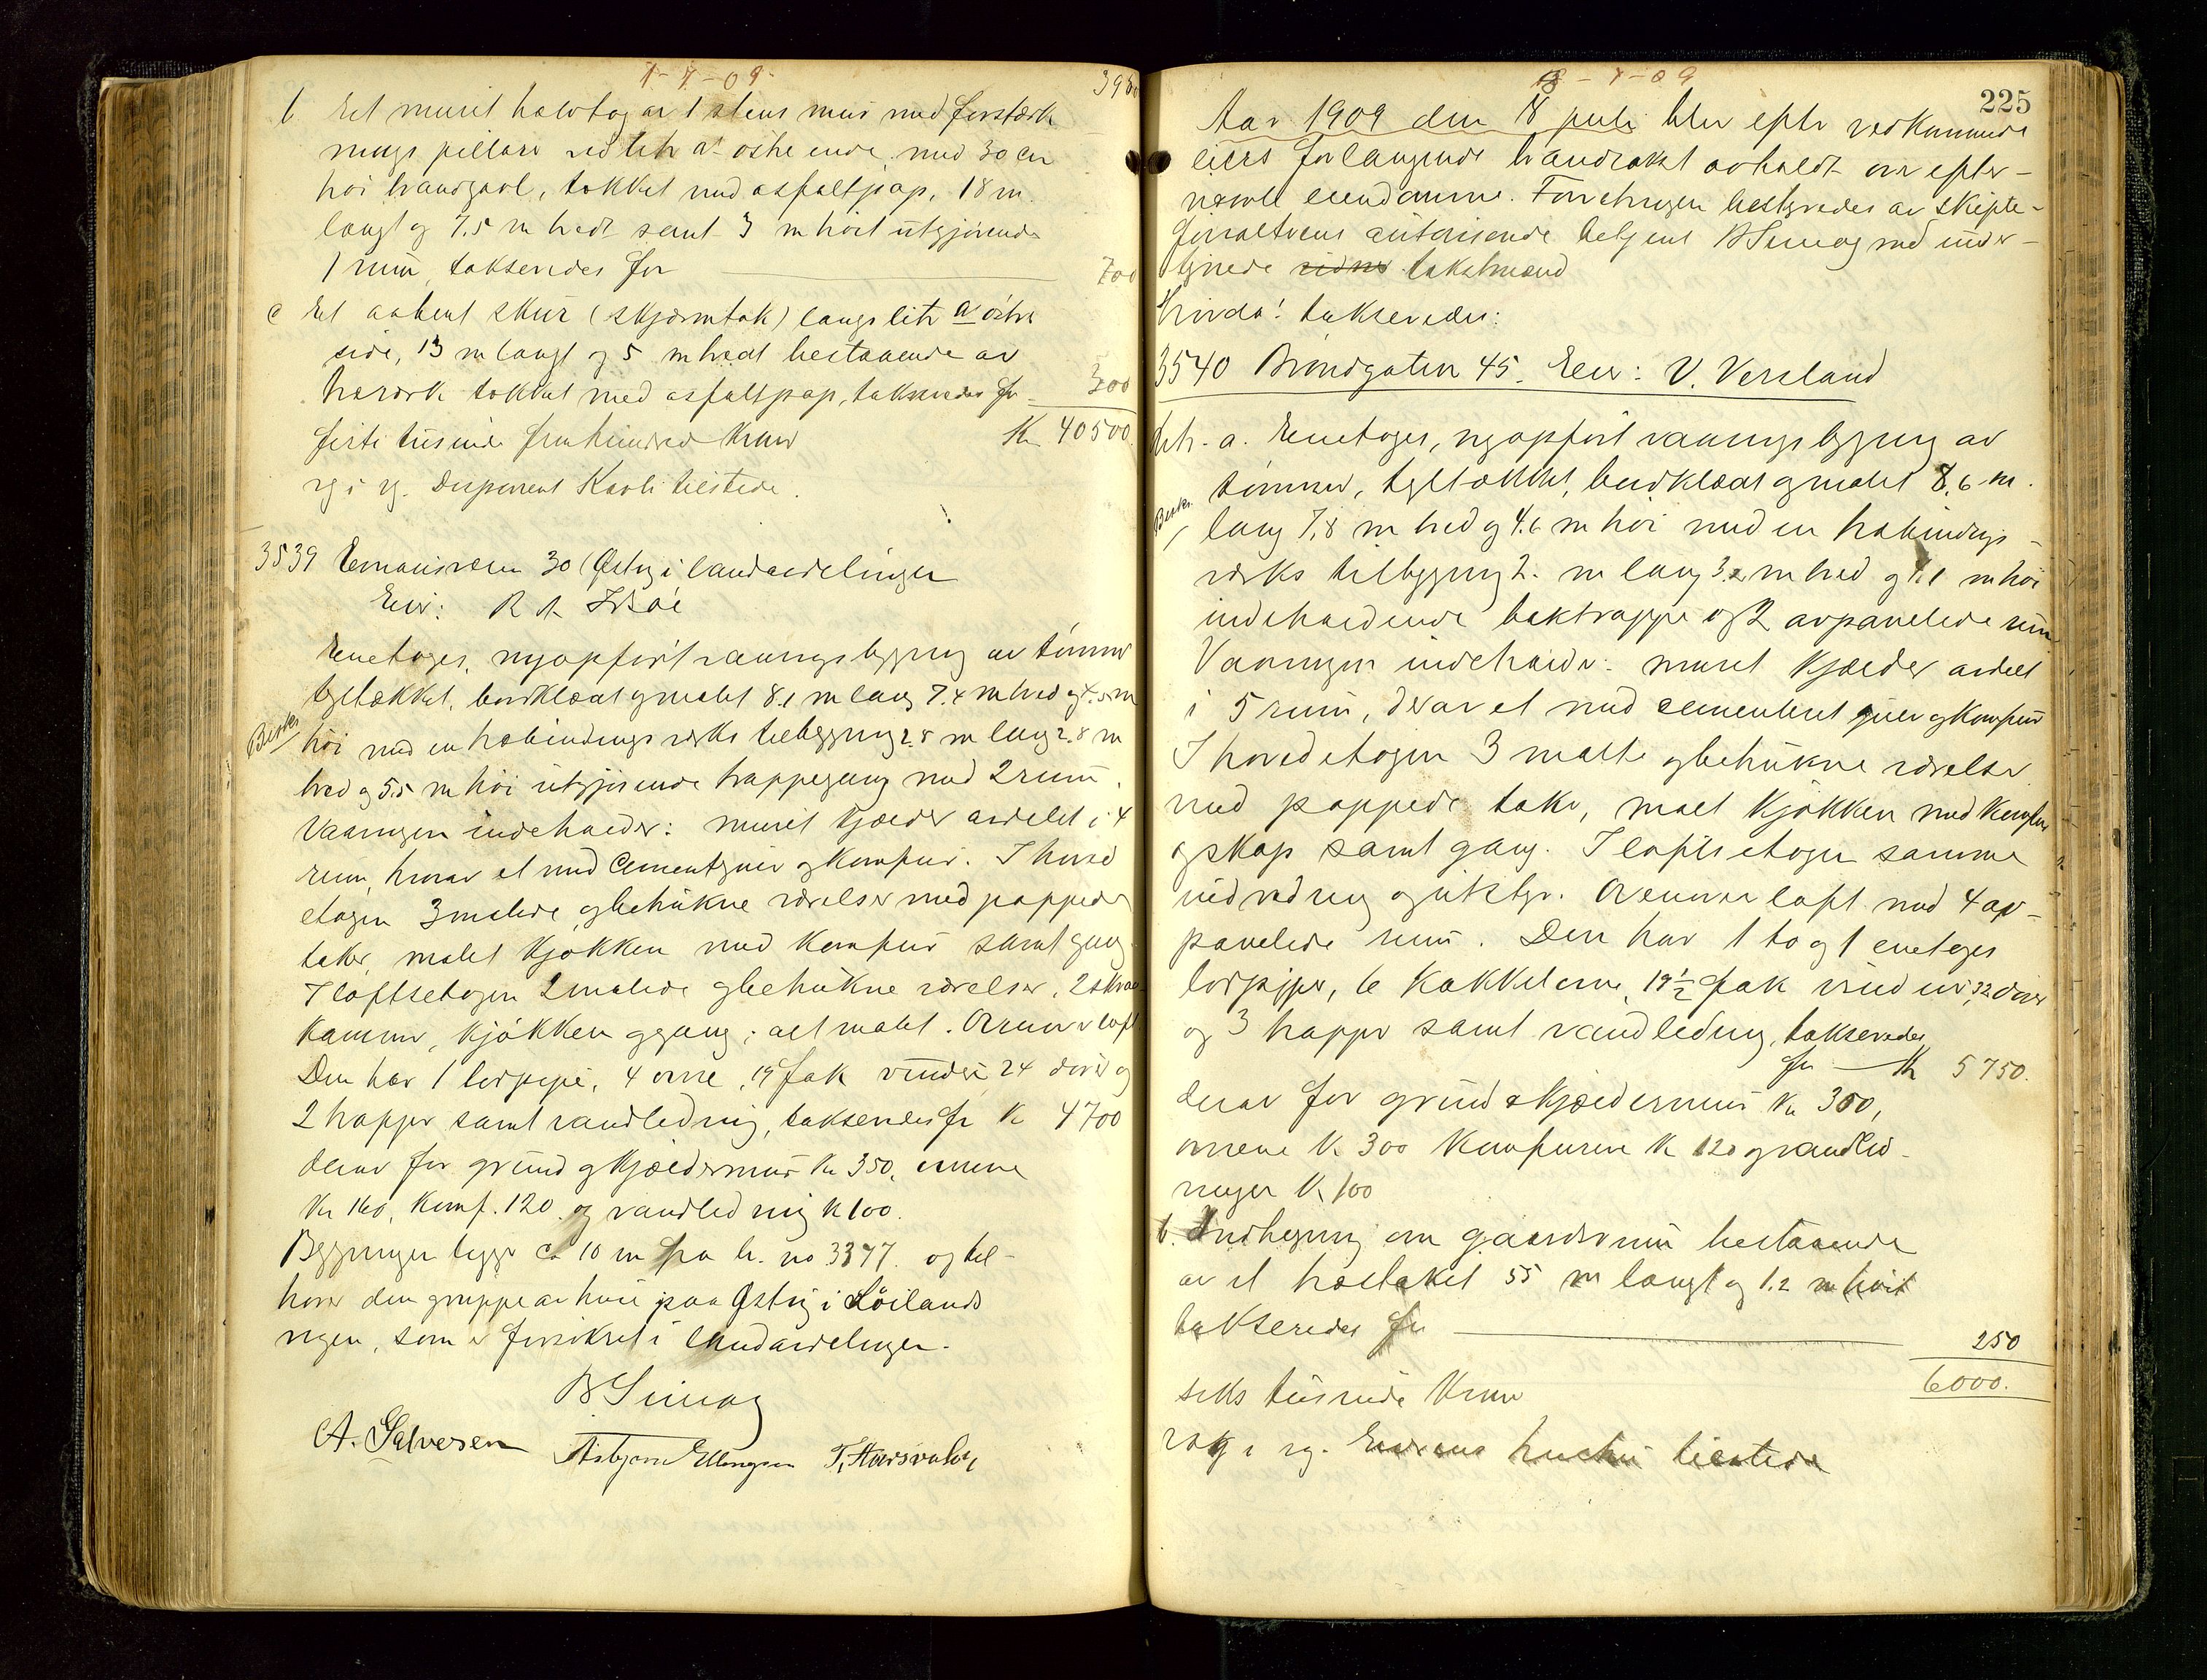 1-7-09
395
b Et muret halvtag av 1 stens mur med forstærk
nings pillarer ved litr a's östre ende, med 30 cm
höi brandgavl, tækket med asfaltpap, 18 m.
langt og 7.5 m bredt samt 3 m höit utgjörende
1 rum, takseredes for 700
c Et aabent skur (skjærmtak) langs litr a's östre
side, 13 m langt og 5 m bredt bestaaende av
træverk tækket med asfaltpap, takseredes for 300
firti tusinde femhundred kroner Kr 40500.
rg i rg. Disponent Kavli tilstede.
3539 Emausveien 30 (Østvig i landavdelingen
Eier: R A
Enetages, nyopfört vaaningsbygning av tömmer
tegltækket, bordklædt og malet 8.1 m lang 7.4 m bred og 4.5 m
Besk.
höi med en træbindingsverks tilbygning 2.8 m lang 2.8 m
bred og 5.5 m höi utgjörende trappegang med 2 rum.
Vaaningen indeholder: muret kjælder avdelet i 4
rum, hvorav et med Cementgulv og komfur. I hoved
etagen 3 malede og betrukne værelser med pappede
taker, malet kjökken med komfur samt gang.
I loftsetagen 2 malede og betrukne værelser, 2 skraa
kammer, kjökken og gang; alt malet. Övrum loft
Den har 1 lerpipe, 4 ovne, 19 fak vinduer 24 dörer og
2 trapper samt vandledning, takseredes for Kr 4700
derav for grund og kjældermur Kr 350, ovnene
Kr 160, komf. 120 og vandledning Kr 100.
Bygningen ligger ca 10 m fra br. no 3377. og til-
hörer den gruppe av huse paa Østvig i Löilands
vigen, som er forsikret i landavdelingen.
B Sunag
A. Salvesen Asbjørn Ellingsen
8-7-09
225
Aar 1909 den 8 juli blev efter vedkommende
eiers forlangende brandtakst avholdt over efter-
nævnte eiendomme. Forretningen bestyredes av skifte-
forvalterens autoriserede betjent B Sunag med under-
tegnede takstmænd
Hvorda! takseredes:
3540 Bröndgaten 45. Eier: V. Versland
Litr. a. Enetages, nyopfört vaaningsbygning av
tömmer, tegltækket, bordklædt og malet 8.6 m.
Besk.
lang 7.8 m bred og 4.6 m höi med en træbindings-
verks tilbygning 2. m lang 3.2 m bred og m höi
indeholdende baktrappe og 2 avpanelede rum
Vaaningen indeholder: muret kjælder avdelt
i 5 rum, derav et med cementeret gulv og komfur
I hovedetagen 3 malte og betrukne værelser
med pappede taker, malt kjökken med komfur
og skap samt gang. I loftsetagen samme
indredning og utstyr. Ovenover loft med 4 av-
panelede rum. Den har 1 to og 1 enetages
lerpiper, 6 kakkelovne, 19½ fak vinduer, 32 dörer
og 3 trapper samt vandledning, takseredes
for Kr 5750.
derav for grund & kjældermur Kr 350,
ovnene Kr 300 komfurene Kr 120 og vandled-
ningen Kr 100
b. Indhegning om gaardsrum bestaaende
av et træstaket 55 m langt og 1.2 m höit
takseredes for 250
6000.
seks tusinde kroner
rg i rg. Eierens hustru tilstede